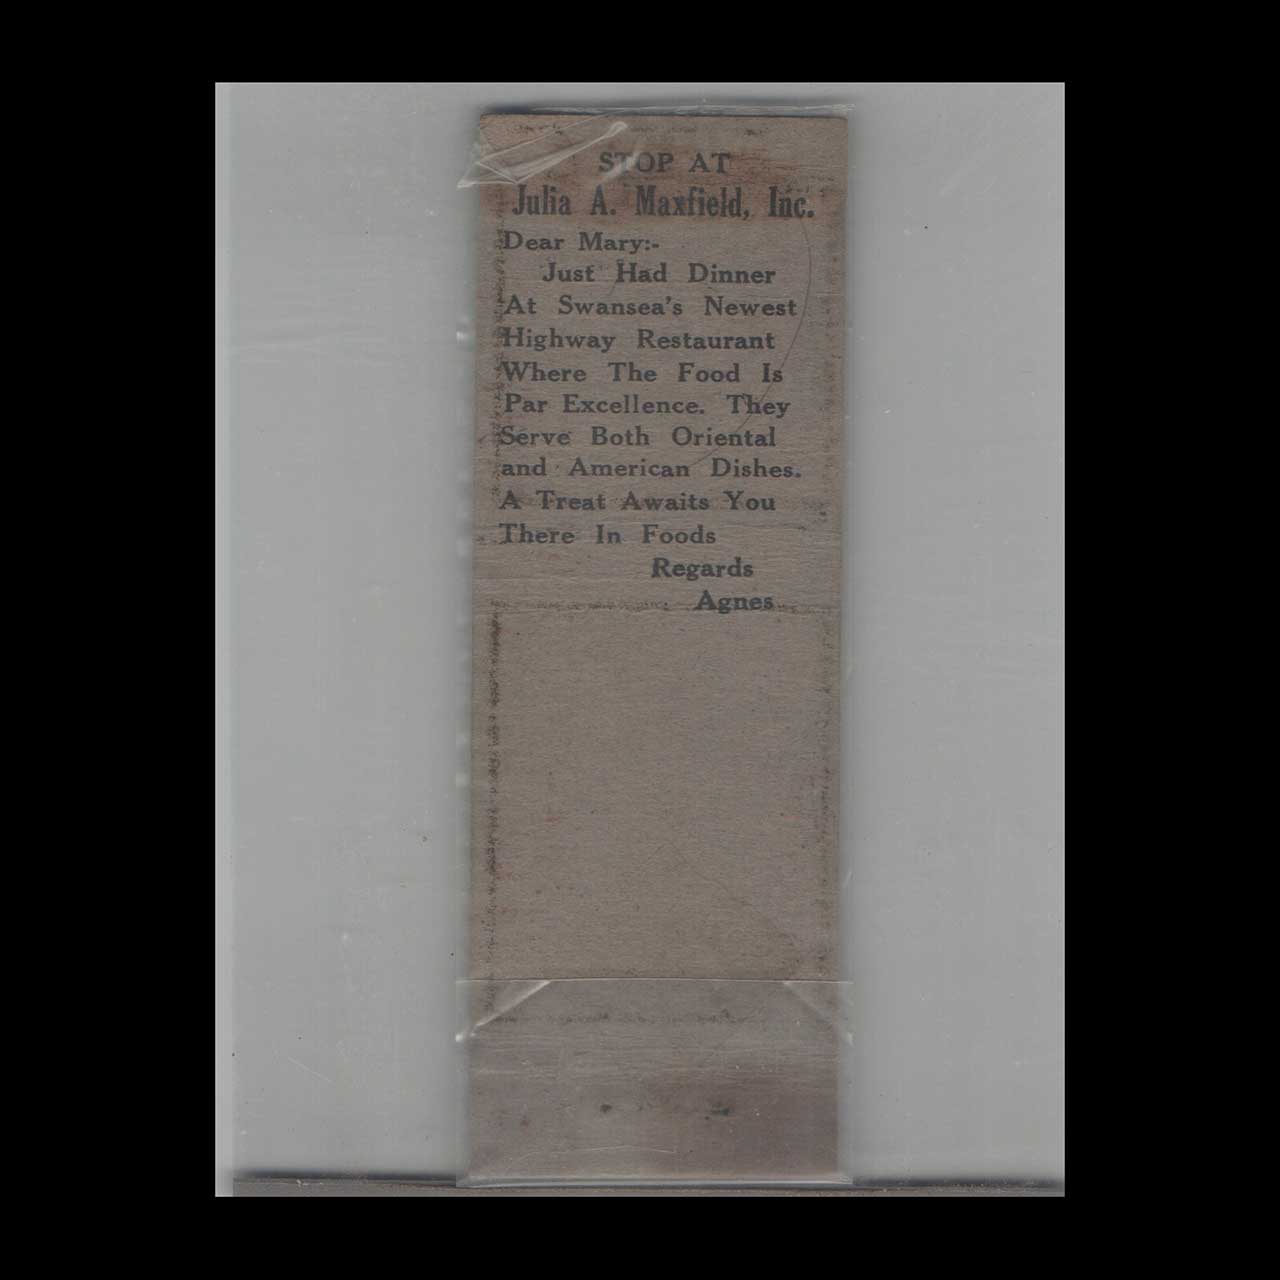 STOP AT
Julia A. Maxfield, Inc.
Dear Mary:-
Just Had Dinner
At Swansea's Newest
Highway Restaurant
Where The Food Is
Par Excellence. They
Serve Both Oriental
and American Dishes.
A Treat Awaits You
There In Foods
Regards
Agnes